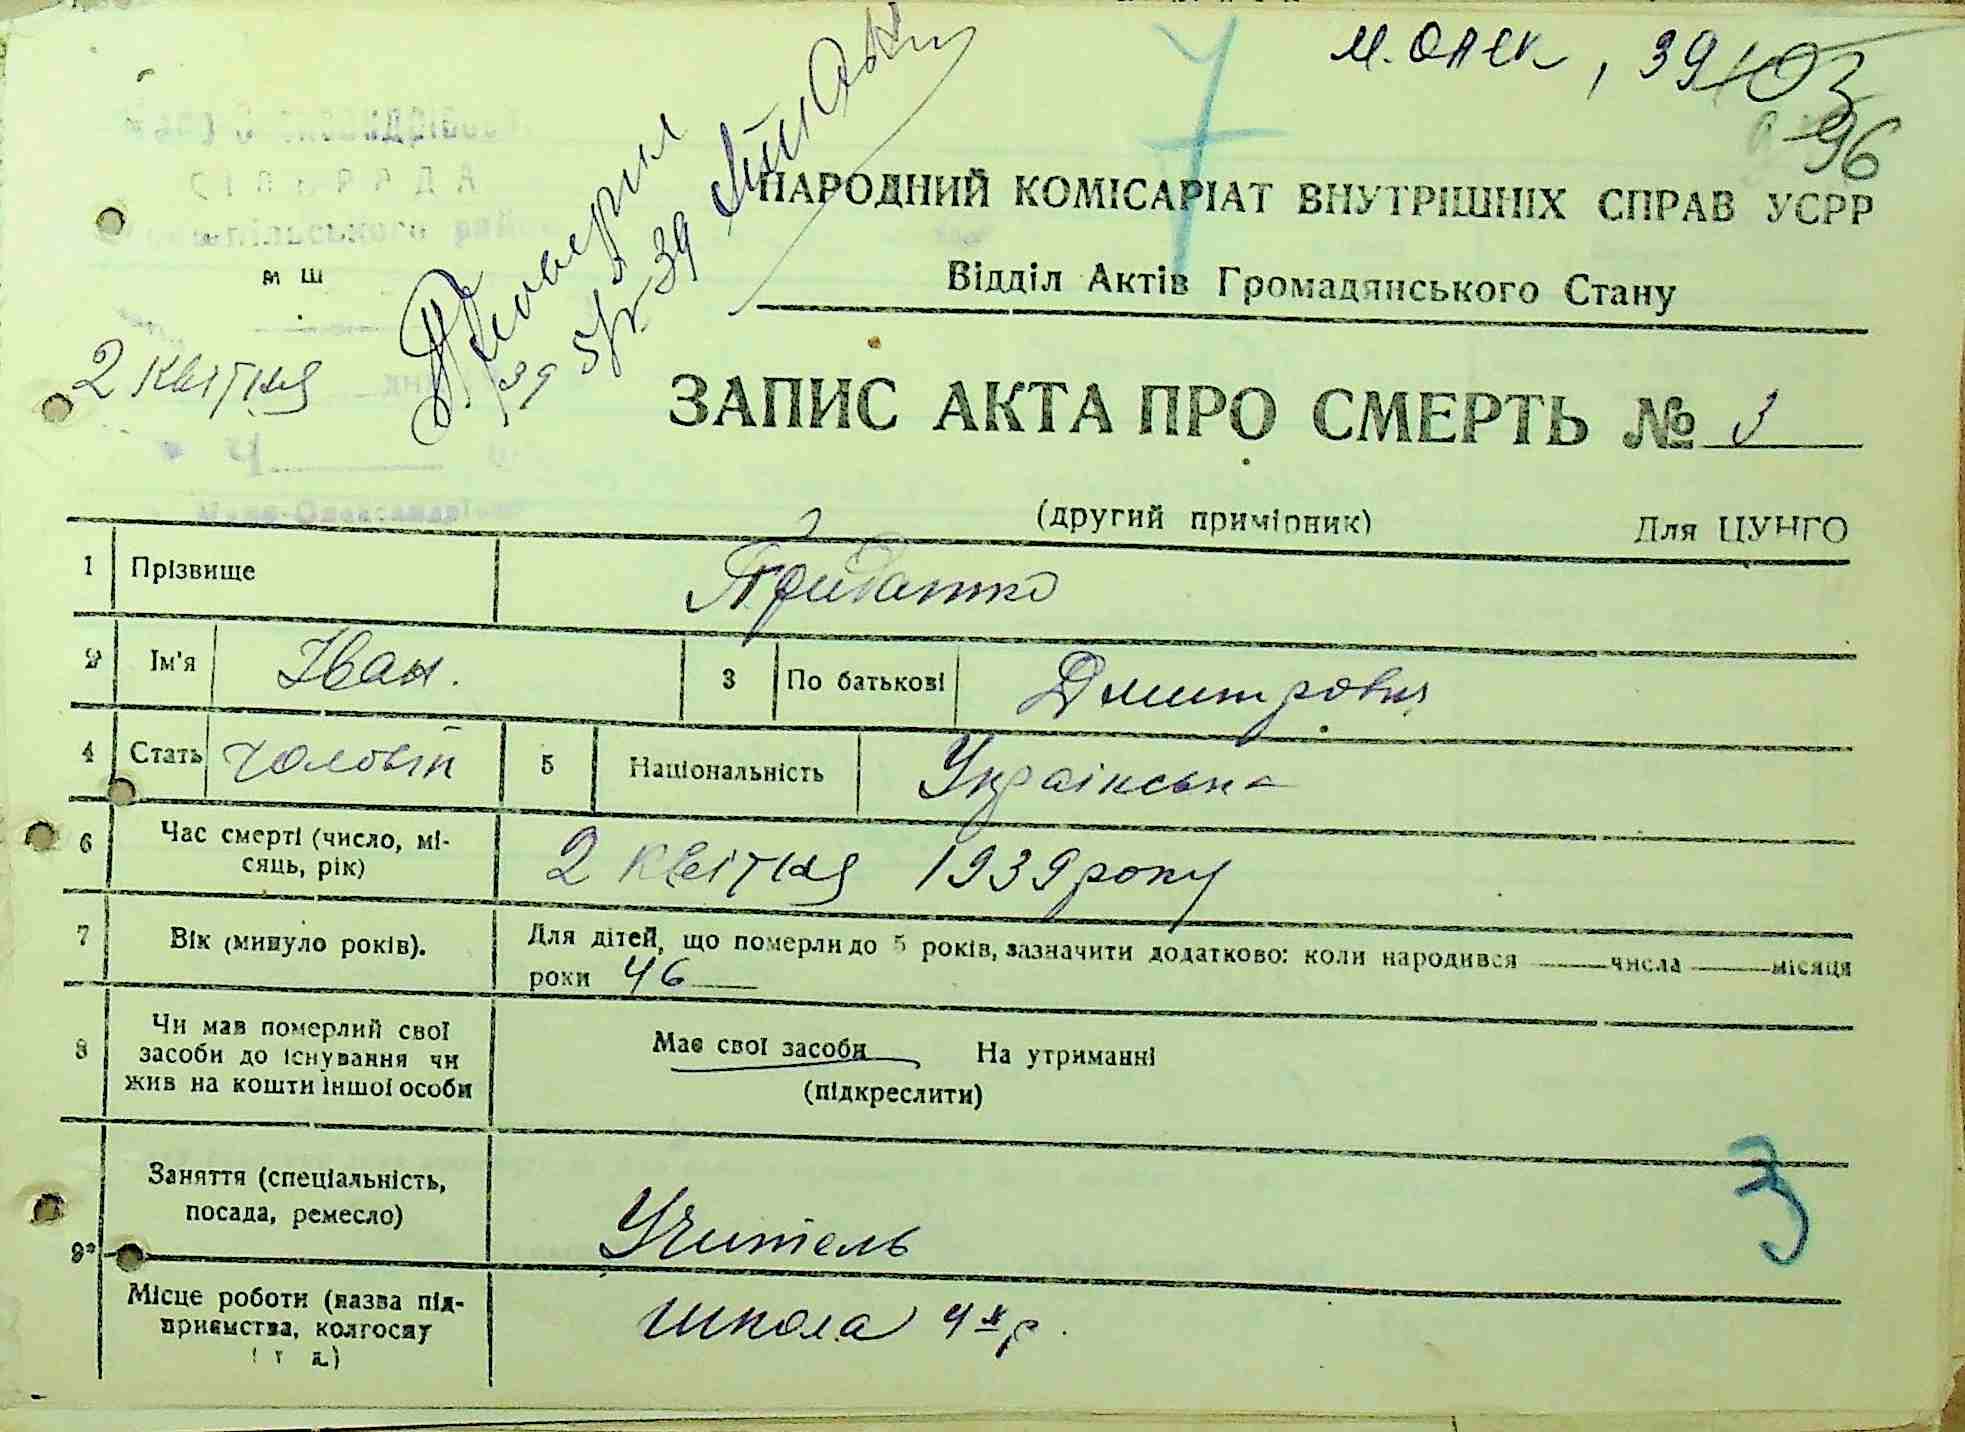 м. Олек, 39
103
96
7
СІЛЬРАДА
НАРОДНИЙ КОМІСАРІАТ ВНУТРІШНІХ СПРАВ УСРР
Відділ Актів Громадянського Стану
2 квітня
Перевірил
39 5/V 39
ЗАПИС АКТА ПРО СМЕРТЬ № 3
(другий примірник) Для ЦУНГО
1 Прізвище Придатко
2 Ім'я Іван. 3 По батькові Дмитрович
4 Стать чоловіч 5 Національність Українська
6 Час смерті (число, мі-
сяць, рік) 2 квітня 1939 року
7 Вік (минуло років). Для дітей, що померли до 5 років, зазначити додатково: коли народився числа місяця
роки 46
8 Чи мав померлий свої
засоби до існування чи
жив на кошти іншої особи
Має свої засоби На утриманні
(підкреслити)
3
Заняття (спеціальність,
посада, ремесло) Учитель
9*
Місце роботи (назва під-
приємства, колгоспу
і т д.)
школа 4х р.